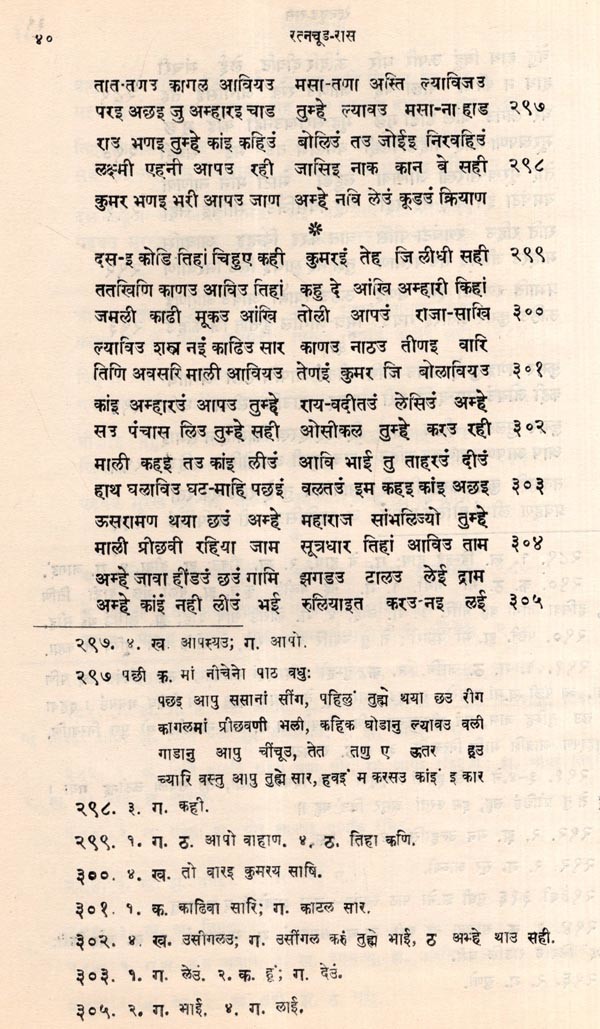 ४० रत्नचूड-रास
तात-तणउ कागल आवियउ मसा-तणा अस्ति ल्याविजउ
परइ अछइ जु अम्हारइ चाड तुम्हे ल्यावउ मसा-ना हाड २९७
राउ भणइ तुम्हे कांइ कहिउं बोलिउं तउ जोईइ निरवहिउं
लक्ष्मी एहनी आपउ रही जासिइ नाक कान बे सही २९८
कुमर भणइ भरी आपउ जाण अम्हे नवि लेउं कूडउं क्रियाण
*
दस-इ कोडि तिहां चिहुए कही कुमरइं तेह जि लीधी सही २९९
ततखिणि काणउ आविउ तिहां कहु दे आंखि अम्हारी किहां
जमली काढी मूकउ आंखि तोली आपउं राजा-साखि ३००
ल्याविउ शस्त्र नइं काढिउ सार काणउ नाठउ तीणइ वारि
तिणि अवसरि माली आवियउ तेणइं कुमर जि बोलावियउ ३०१
कांइ अम्हारउं आपउ तुम्हे राय-वदीतउं लेसिउं अम्हे
सउ पंचास लिउ तुम्हे सही ओसीकल तुम्हे करउ रही ३०२
माली कहइ तउ कांइ लीउं आवि भाई तु ताहरउं दीउं
हाथ घलाविउ घट-माहि पछइं वलतउं इम कहइ कांइ अछइ ३०३
ऊसरामण थया छउं अम्हे महाराज सांभलिज्यो तुम्हे
माली प्रीछवी रहिया जाम सूत्रधार तिहां आविउ ताम ३०४
अम्हे जावा हींडउं छउं गामि झगडउ टालउ लेई द्राम
अम्हे कांइं नही लीउं भई रुलियाइत करउ-नइ लई ३०५
२९७. ४. ख. आपस्यउ; ग. आपो.
२९७ पछी क. मां नीचेनो पाठ वधु:
पछइ आपु ससानां सींग, पहिलुं तुह्मे थया छउ रींग
कागलमां प्रीछवणी भली, कहिक घोडानु ल्यावउ वली
गाडानु आपु चींचूउ, तेत तणु ए ऊतर हूउ
च्यारि वस्तु आपु तुह्मे सार, हवइं म करसउ कांइं इ कार
२९८. ३. ग. कही.
२९९. १. ग. ठ. आपो वाहाण. ४. ठ. तिहा कणि.
३००. ४. ख. तो वारइ कुमरय साषि.
३०१. १. क. काढिवा सारि; ग. काटल सार.
३०२. ४. ख. उसीगलउ; ग. उसींगल करुं तुह्मे भाई, ठ अम्हे थाउ सही.
३०३. १. ग. लेउं. २. क. हूं; ग. देउं.
३०५. २. ग. भाई. ४. ग. लाई.